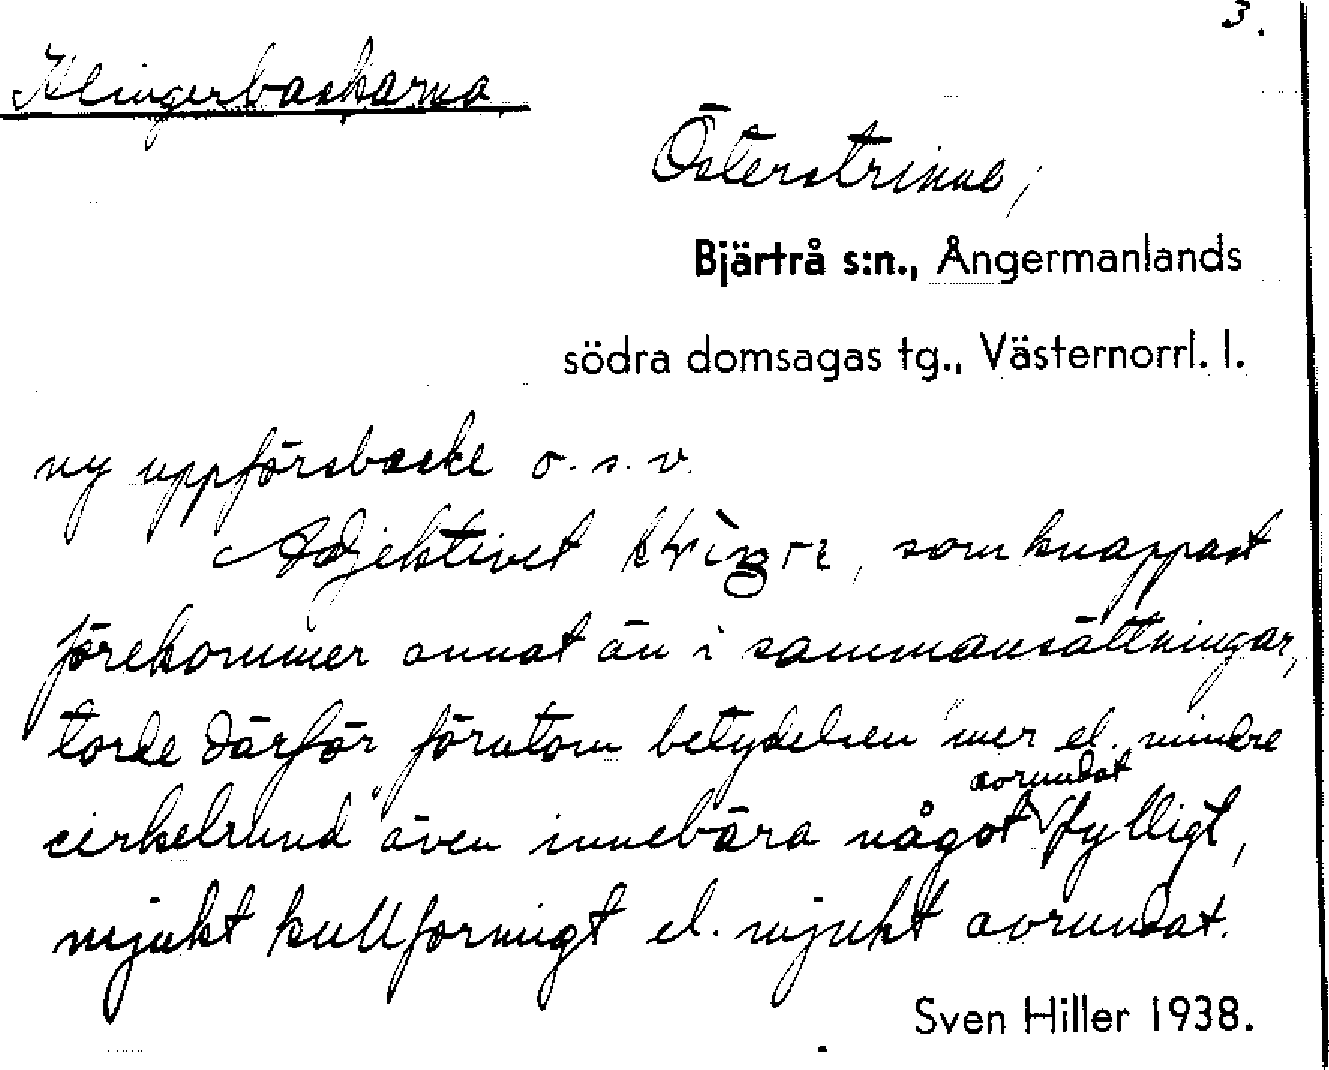 3.
Klingerbackarna
Österstrinne,
Bjärtrå s:n., Ångermanlands
södra domsagas tg., Västernorrl. l.
ny uppförsbacke o.s.v.
Adjektivet , som knappast
förekommer annat än i sammansättningar,
torde därför förutom betydelsen "mer el. mindre
avrundat
cirkelrund" även innebära något fylligt,
mjukt kullformigt el. mjukt avrundat.
Sven Hiller 1938.